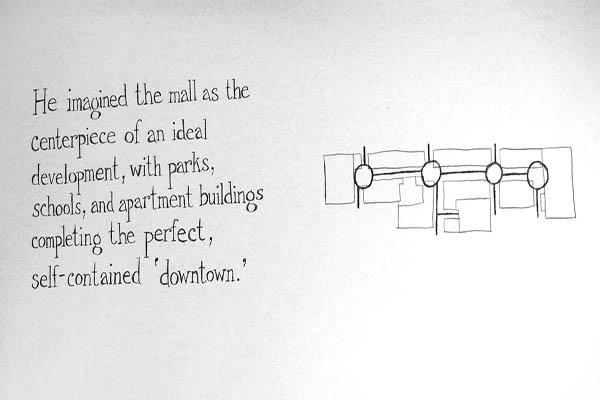 He imagined the mall as the
centerpiece of an ideal
development, with parks,
schools, and apartment buildings
completing the perfect,
self-contained 'downtown.'